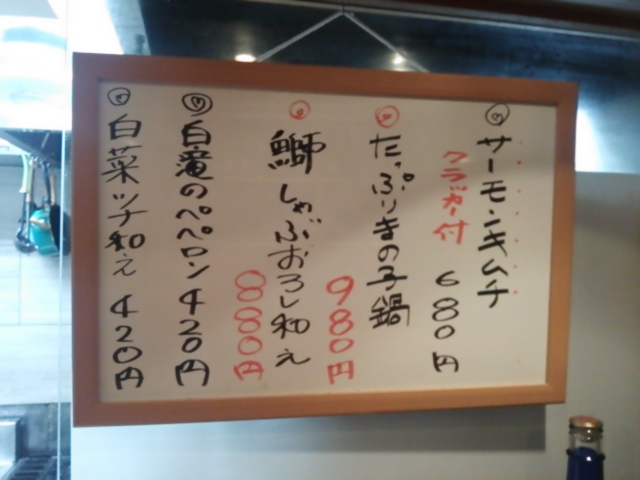 サーモンキムチ
クラッカー付
680円
たっぷりきの子鍋
980円
鰤しゃぶおろし和え
880円
白滝のペペロン 420円
白菜ツナ和え 420円